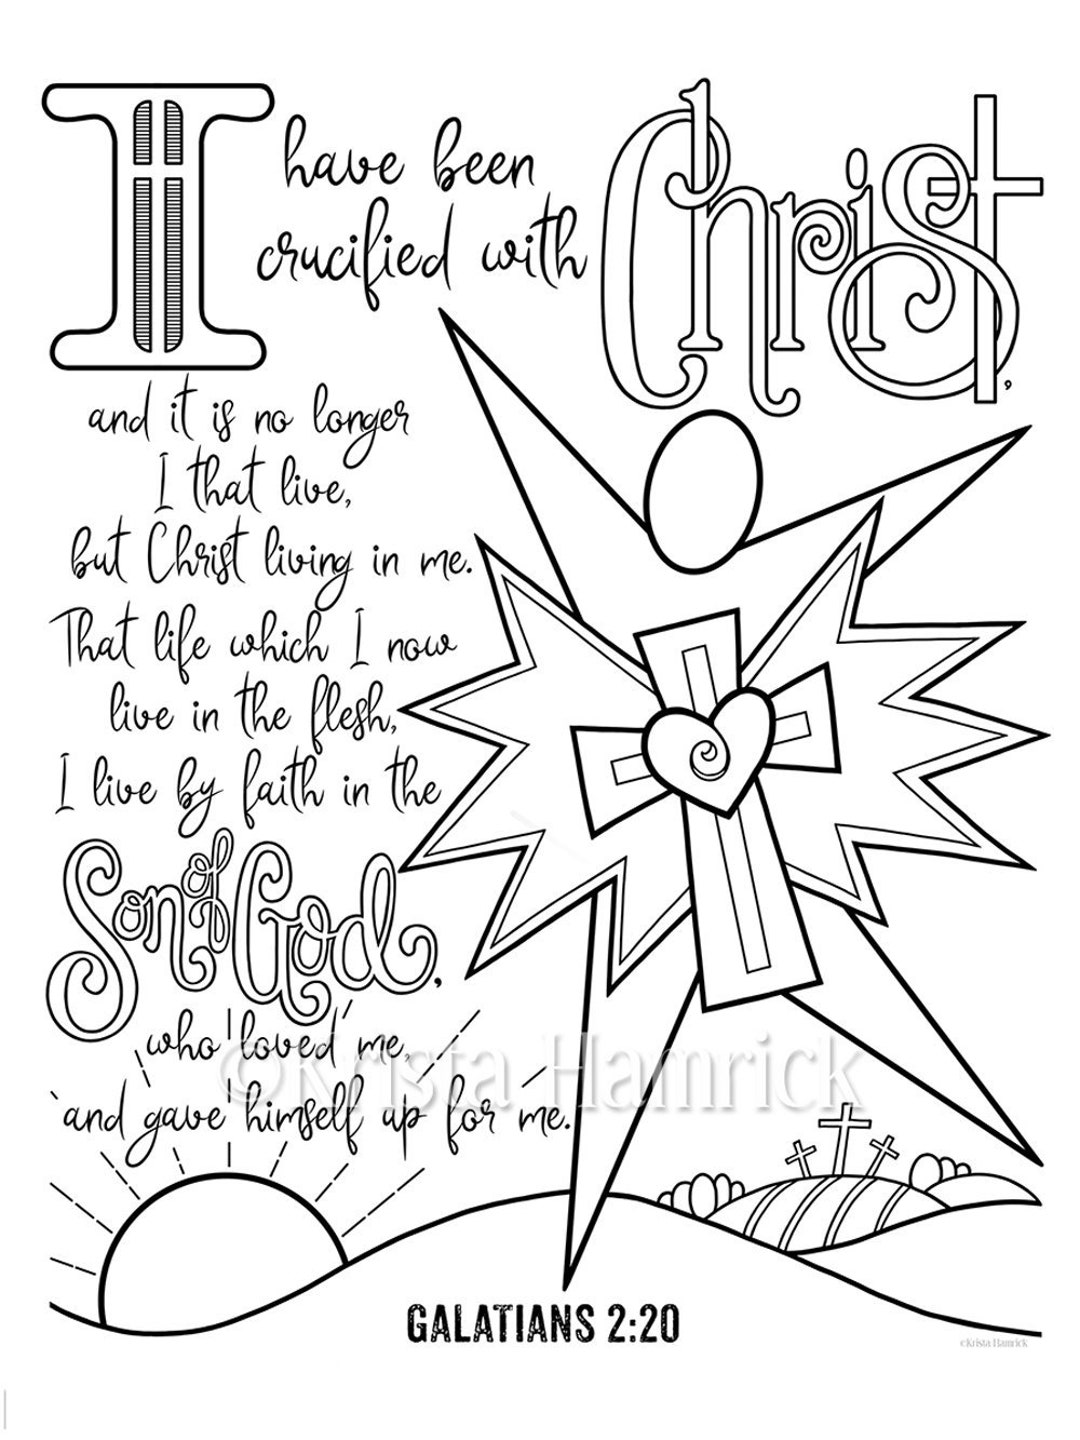 I have been
crucified with Christ,
and it is no longer
I that live,
but Christ living in me.
That life which I now
live in the flesh,
I live by faith in the
Son of God,
who loved me,
and gave himself up for me.
©Krista Hamrick
GALATIANS 2:20
©Krista Hamrick